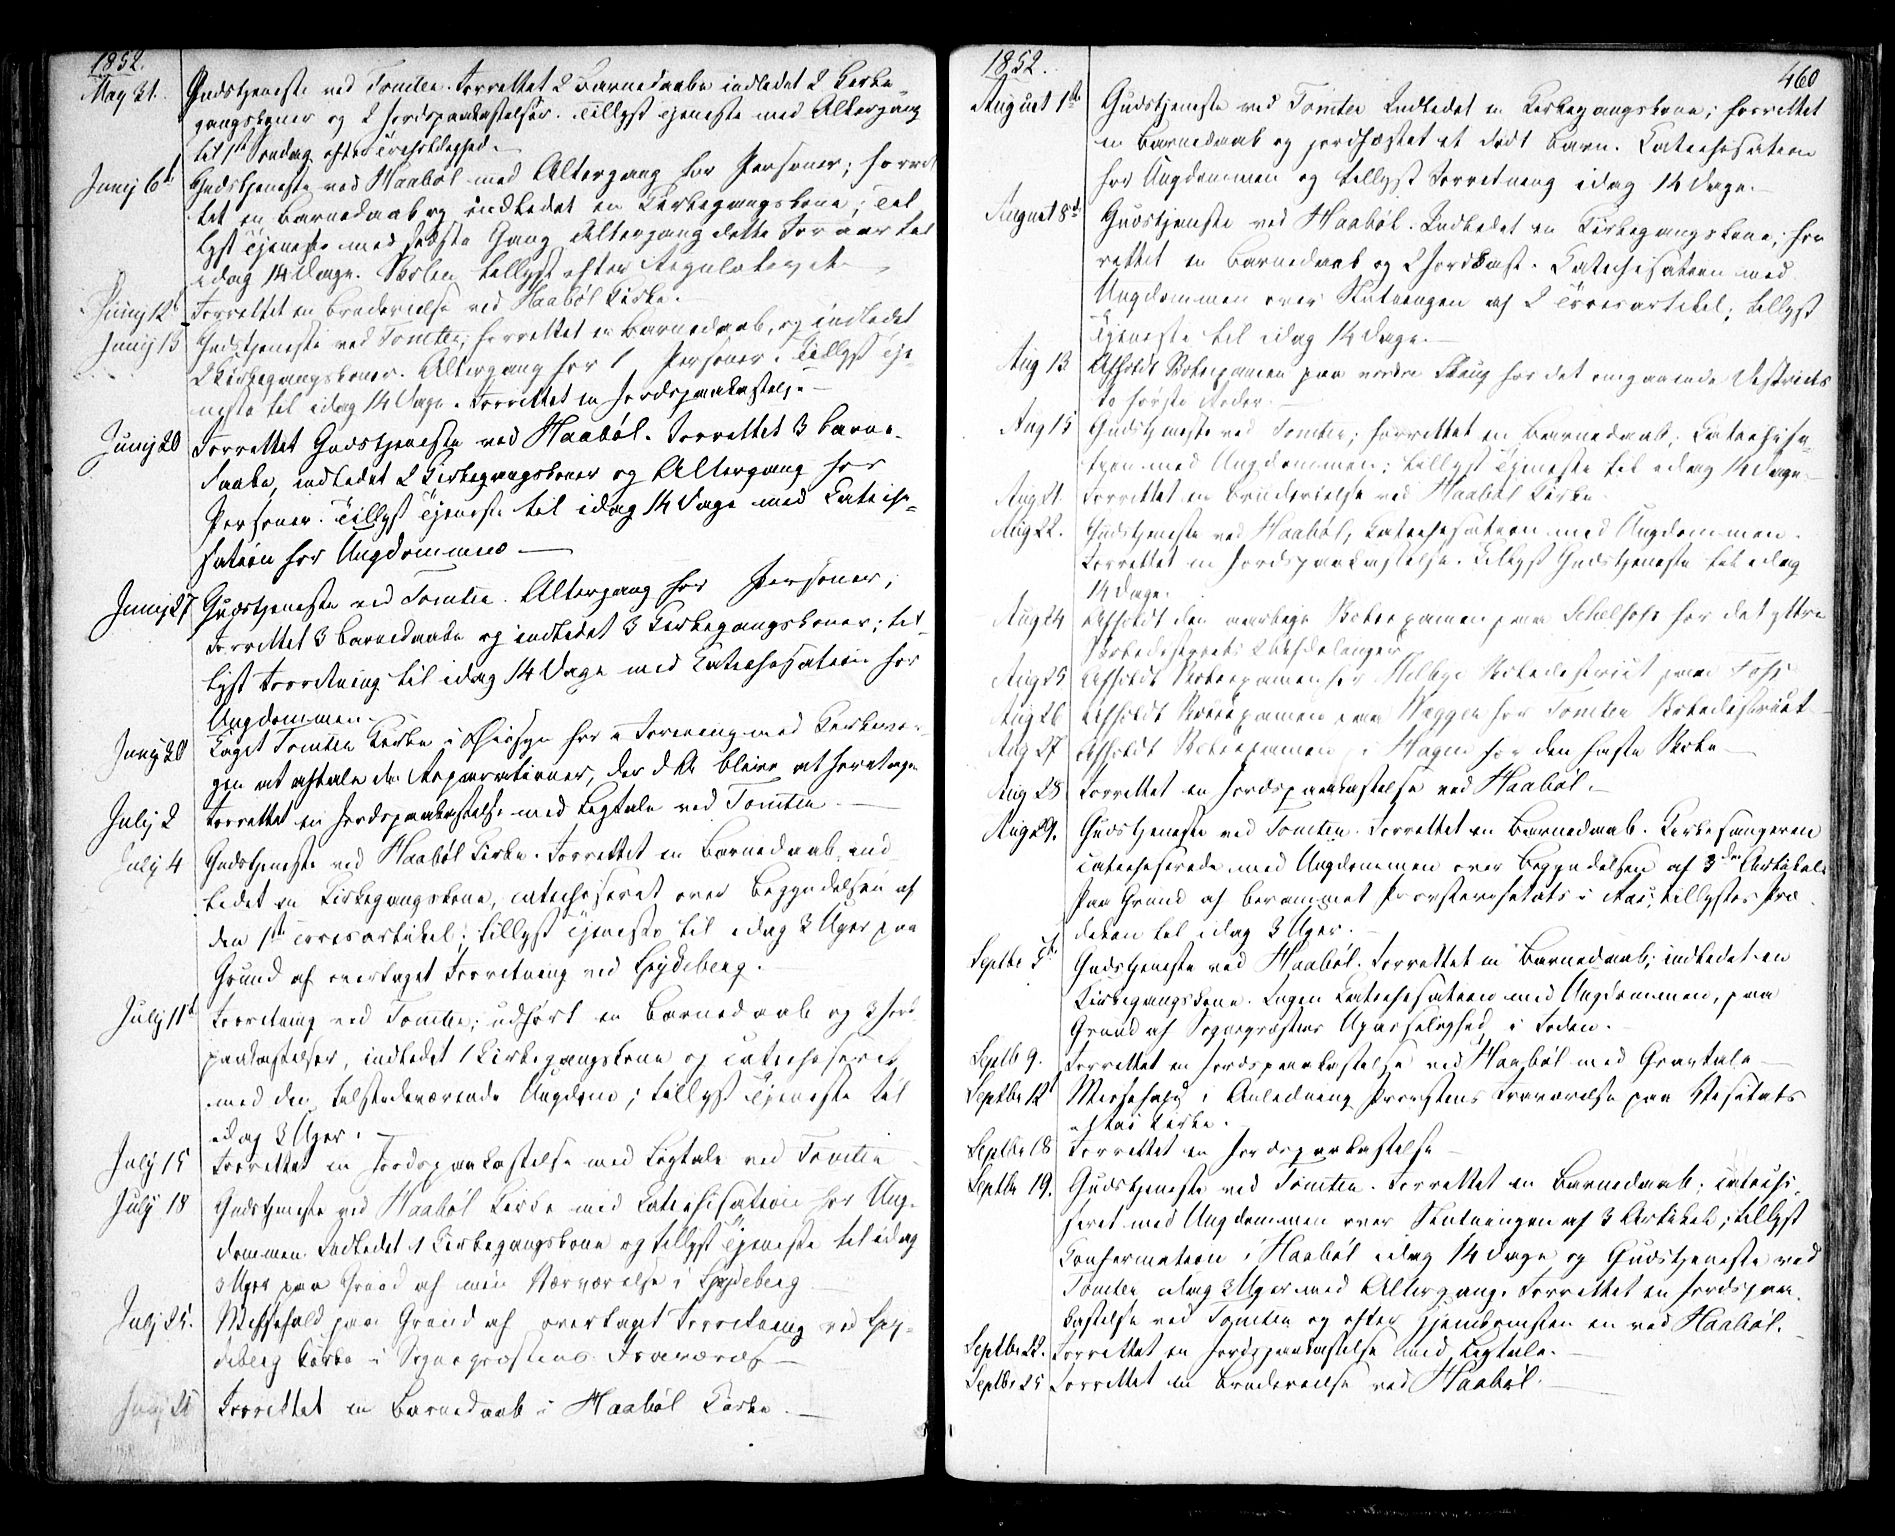 1852.
May 31. Gudstjeneste ved Tomter. Forrettet 2 Barnedaabe indledet 2 Kirke-
gangskoner og 2 Jordspaakastelser. Tillyst Tjeneste med Altergang
til 1st Søndag efter Trefoldighed.
Junij 6t Gudstjeneste ved Haabøl med Altergang for Personer; forret
tet en Barnedaab og indledet en Kirkegangskone; Til
lyst Tjeneste med sidste Gang Altergang dette Foraar til
idag 14 Dage. Skolen tillyst efter Regulativet
Junij 12t Forrettet en Brudevielse ved Haabøl Kirke.
Junij 13 Gudstjeneste ved Tomter; forrettet en Barnedaab, og indledet
2 Kirkegangskoner. Altergang for 1 Personer. Tillyst Tje-
neste til idag 14 Dage. Forrettet en Jordspaakastelse
Junij 20 Forrettet Gudstjeneste ved Haabøl. Forrettet 3 Barne-
daabe, indledet 2 Kirkegangskoner og Altergang for
Personer. Tillyst Tjeneste til idag 14 Dage med Catechi-
sation for Ungdommen
Junij 27 Gudstjeneste ved Tomter. Altergang for Personer;
Forrettet 3 Barnedaabe og indledet 3 Kirkegangskoner; til-
lyst Forretning til idag 14 Dage med Catechisation for
Ungdommen.
Junij 28 Taget Tomter Kirke i Øiesyn for i Forening med Kirkevær-
gen at aftale de Reparationer, der bliver at foretage
Julij 2 Forrettet en Jordspaakastelse med Ligtale ved Tomter
July 4 Gudstjeneste ved Haabøl Kirke. Forrettet en Barnedaab, ind
ledet en Kirkegangskone, catechiseret over Begyndelsen af
den 1st Troesartikel; tillyst Tjeneste til idag 3 Uger paa
Grund af overtaget Forretning ved Spydeberg.
Julij 11t Forretning ved Tomter; udført en Barnedaab og 3 Jord
paakastelser, indledet 1 Kirkegangskone og catechiseret
med den tilstedeværende Ungdom; tillyst Tjeneste til
idag 3 Uger.
July 15 Forrettet en Jordspaakastelse med Ligtale ved Tomter
July 18 Gudstjeneste ved Haabøl Kirke med Catechisation for Ung-
dommen. Indledet 1 Kirkegangskone og tillyst Tjeneste til idag
3 Uger paa Grund af min Nærværelse i Spydeberg
Julij 25. Messefald paa Grund af overtaget Forretning ved Spy-
deberg Kirke i Sognepræstens Fraværes
July 25 Forrettet en Barnedaab i Haabøl Kirke.
1852. 460
August 1st Gudstjeneste ved Tomter Indledet en Kirkegangskone; forrettet
en Barnedaab og jordfæstet et dødt Barn. Catechisation
for Ungdommen og tillyst Forretning idag 14 Dage.
August 8d Gudstjeneste ved Haabøl. Indledet en Kirkegangskone, for
rettet en Barnedaab og 2 Jordkast. Catechisation med
Ungdommen over Slutningen af 2 Troesartikel; tillyst
Tjeneste til idag 14 Dage.
Aug 13 Afholdt Skoleexamen paa nordre Skaug for det omgaaende Districts
to første Roder.
Aug 15 Gudstjeneste ved Tomter; forrettet en Barnedaab; Catechisa-
tion med Ungdommen; tillyst Tjeneste til idag 14 Dage.
Aug 21. Forrettet en Brudevielse ved Haabøl Kirke
Aug 22. Gudstjeneste ved Haabøl, Catechisation med Ungdommen.
Forrettet en Jordspaakastelse. Tillyst Gudstjeneste til idag
14 Dage.
Aug 24 Afholdt den aarlige Skoleexamen paa for det yttre
Skoledistricts 2 Afdelinger
Aug 25 Afholdt Skoleexamen for Melbye Skoledistrict paa Foss
Aug 26 Afholdt Skoleexamen paa for Tomter Skoledistrict
Aug 27 Afholdt Skoleexamen i Hagen for den faste Skole
Aug 28 Forrettet en Jordspaakastelse ved Haabøl.
Aug 29. Gudstjeneste ved Tomter. Forrettet en Barnedaab. Kirkesangeren
catechiserede med Ungdommen over Begyndelsen af 3die Artikel.
Paa Grund af berammet Provstevisitats i Aas, tillystes Præ
diken til idag 3 Uger.
Septbr 5t Gudstjeneste ved Haabøl. Forrettet en Barnedaab; indledet en
Kirkegangskone. Ingen Catechisation med Ungdommen, paa
Grund af Sognepræstens Upasselighed, i Foden.
Septb 9. Forrettet en Jordspaakastelse ved Haabøl med Gravtale
Septbr 12t Messefald i Anledning Provstens Fraværelse paa Visitats
i Aas Kirke.
Septbr 18 Forrettet en Jordspaakastelse
Septbr 19. Gudstjeneste ved Tomter. Forrettet en Barnedaab; catechi-
seret med Ungdommen over Slutningen af 3 Artikel; tillyst
Confirmation i Haabøl idag 14 Dage og Gudstjeneste ved
Tomter idag 3 Uger med Altergang. Forrettet en Jordspaa-
kastelse ved Tomter og efter Hjemkomsten en ved Haabøl.
Septbr 22. Forrettet en Jordspaakastelse med Ligtale.
Septbr 25 Forrettet en Brudevielse ved Haabøl.